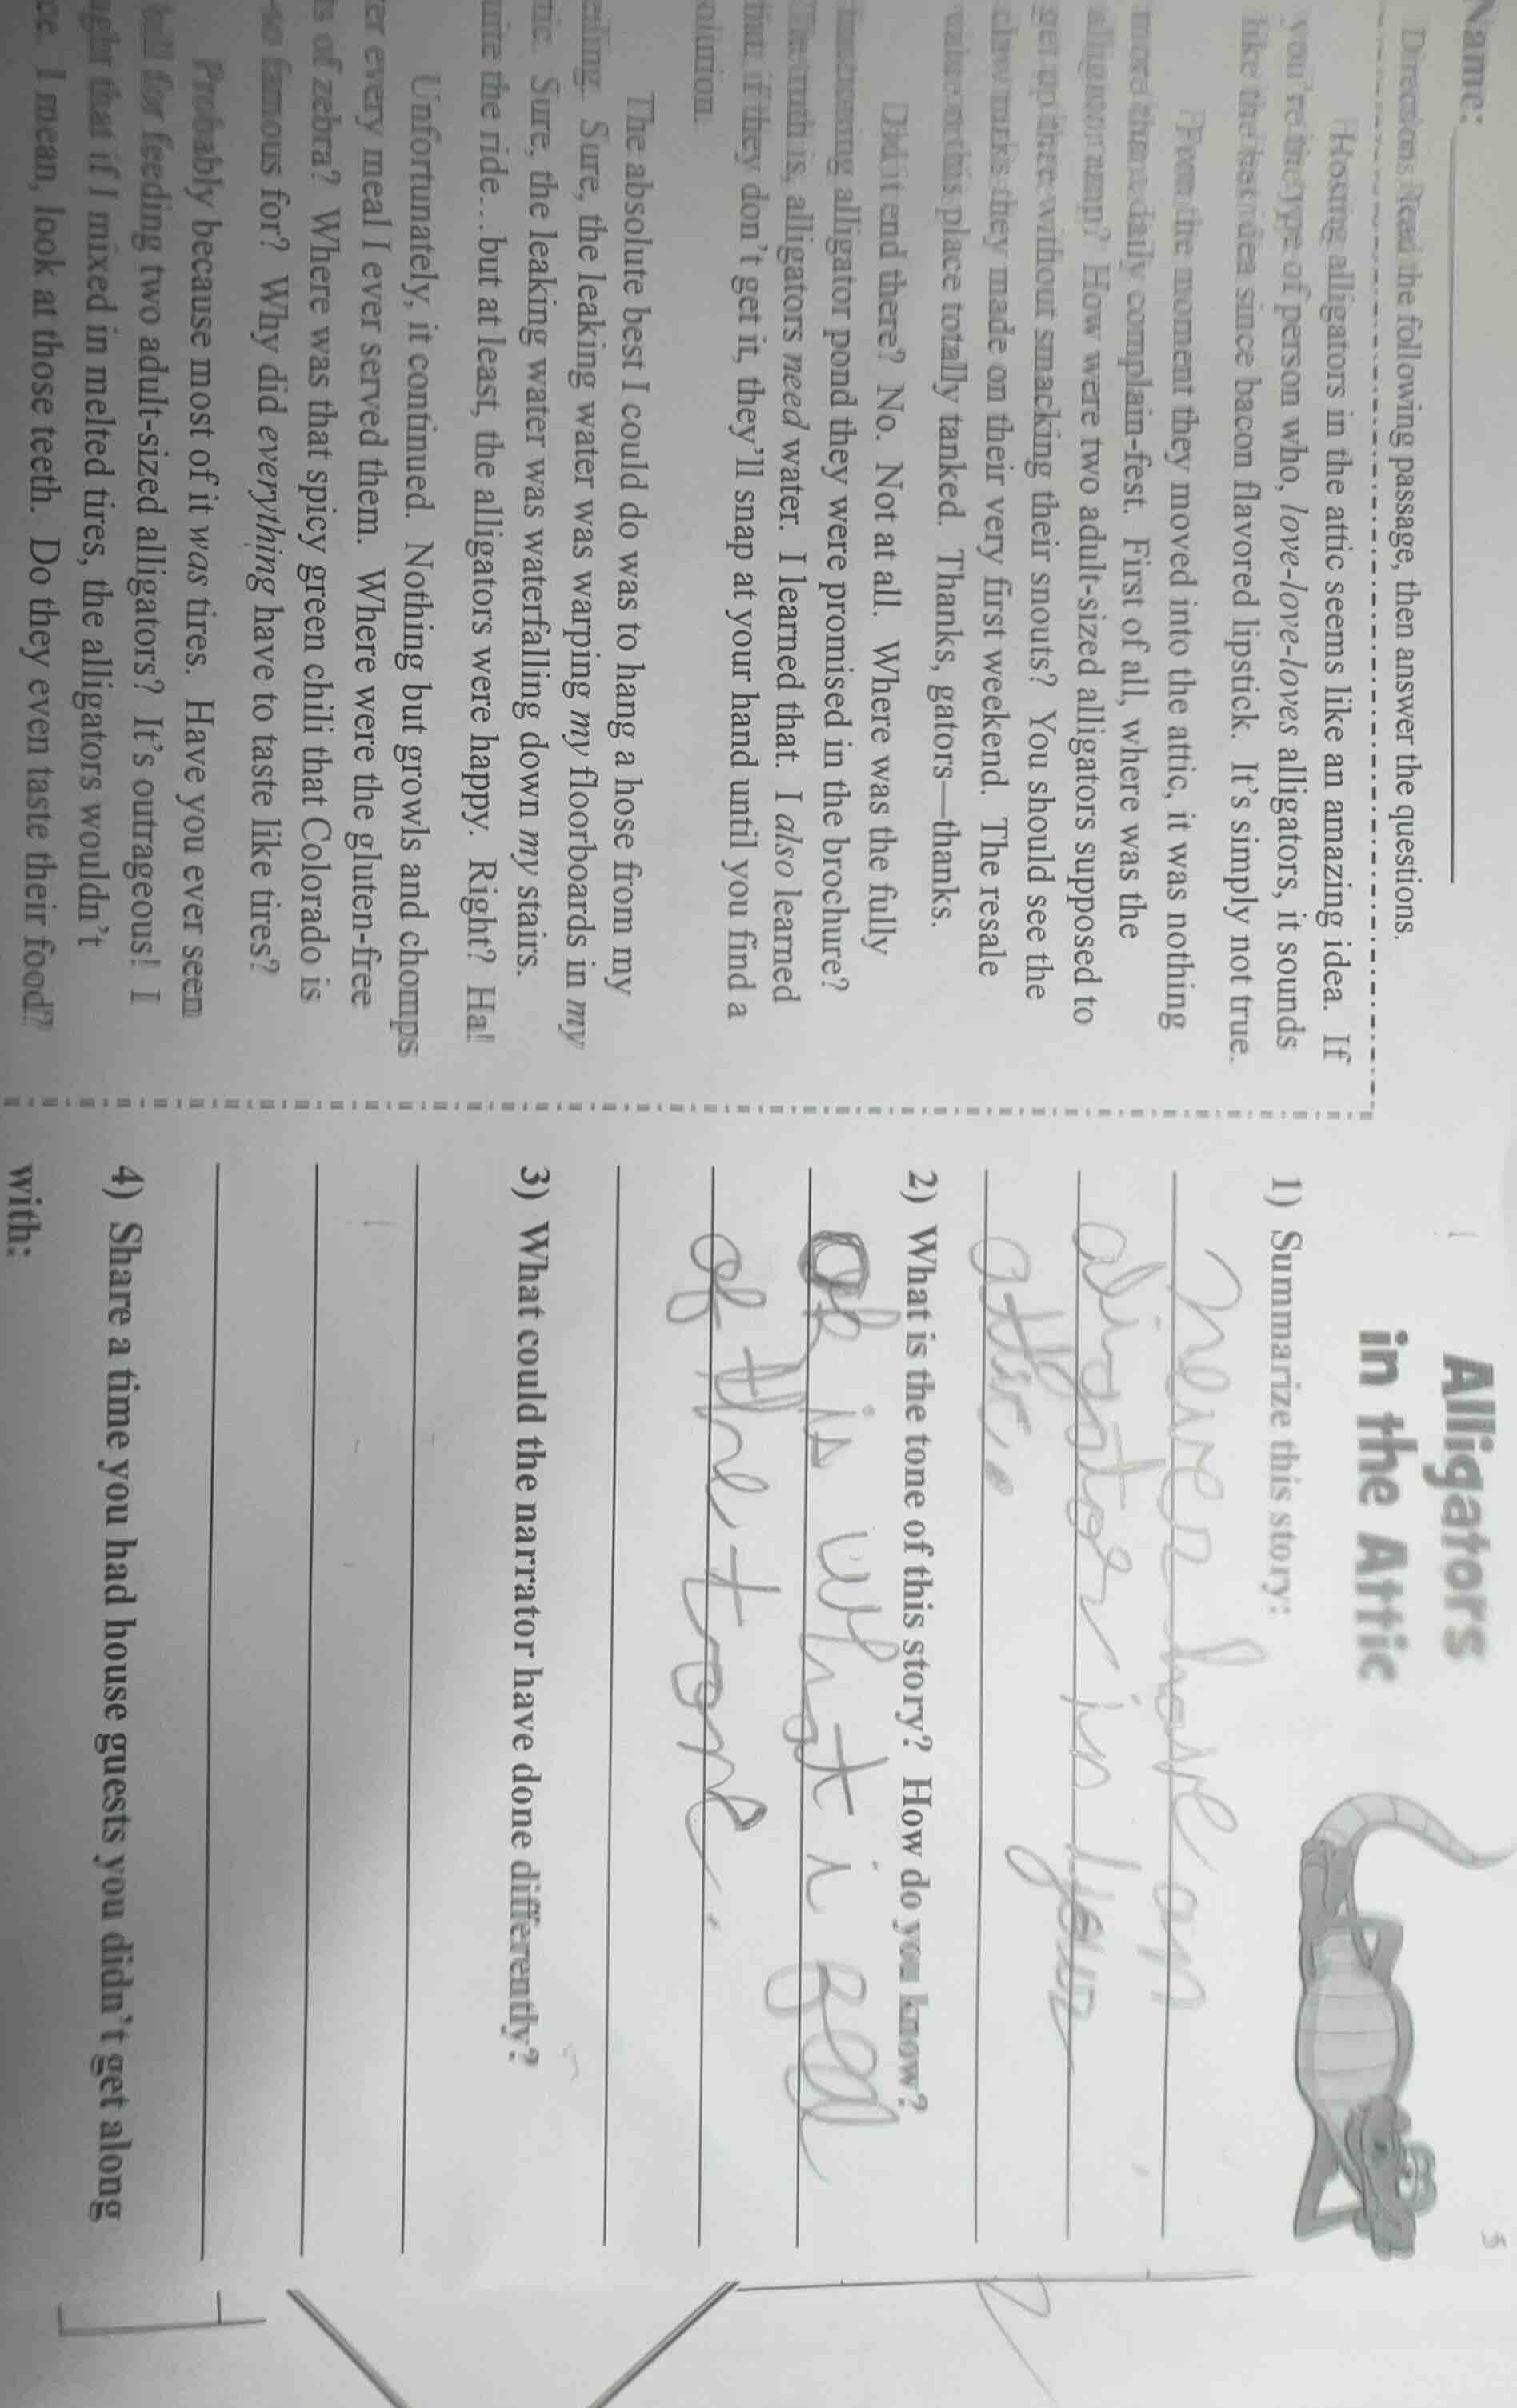 Name:
Directions Read the following passage, then answer the questions.
Hosting alligators in the attic seems like an amazing idea. If
you're the type of person who, love-love-loves alligators, it sounds
like the best idea since bacon flavored lipstick. It's simply not true.
From the moment they moved into the attic, it was nothing
more than a daily complain-fest. First of all, where was the
alligator ramp? How were two adult-sized alligators supposed to
get up there without smacking their snouts? You should see the
claw marks they made on their very first weekend. The resale
value on this place totally tanked. Thanks, gators—thanks.
Did it end there? No. Not at all. Where was the fully
functioning alligator pond they were promised in the brochure?
The truth is, alligators need water. I learned that. I also learned
that if they don't get it, they'll snap at your hand until you find a
olution.
The absolute best I could do was to hang a hose from my
eiling. Sure, the leaking water was warping my floorboards in my
tic. Sure, the leaking water was waterfalling down my stairs.
uite the ride…but at least, the alligators were happy. Right? Ha!
Unfortunately, it continued. Nothing but growls and chomps
er every meal I ever served them. Where were the gluten-free
s of zebra? Where was that spicy green chili that Colorado is
so famous for? Why did everything have to taste like tires?
Probably because most of it was tires. Have you ever seen
bill for feeding two adult-sized alligators? It's outrageous! I
ught that if I mixed in melted tires, the alligators wouldn't
ce. I mean, look at those teeth. Do they even taste their food?
Alligators
in the Attic
5
1) Summarize this story:
never have an
aligator in your
attic.
2) What is the tone of this story? How do you know?
ok is what i feel
of the tone.
3) What could the narrator have done differently?
4) Share a time you had house guests you didn't get along
with: